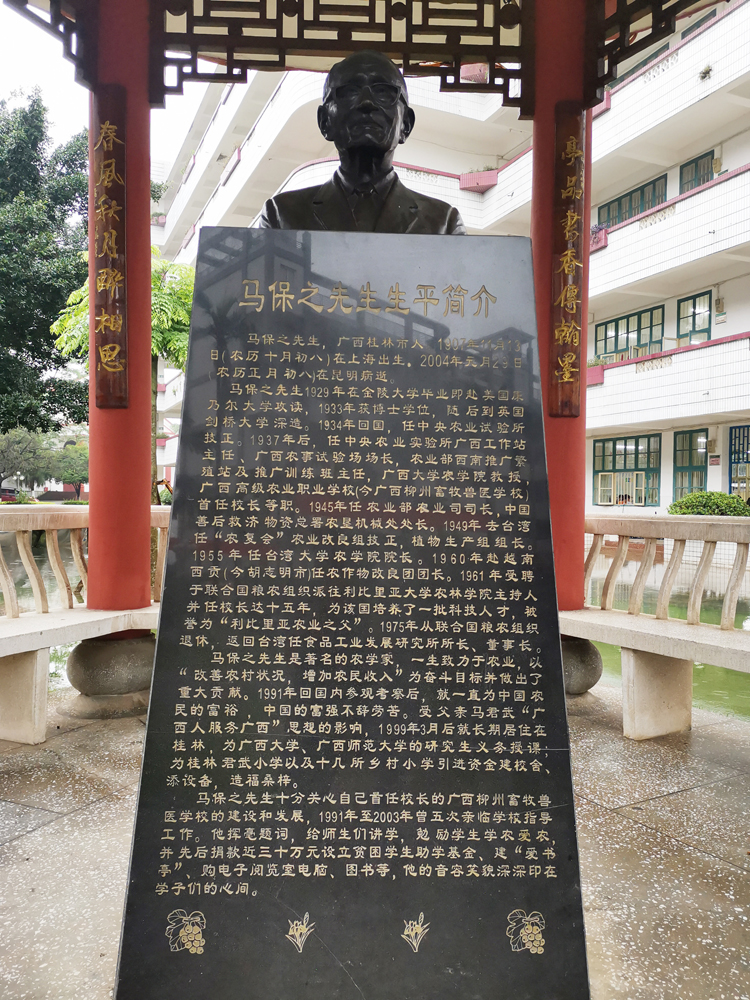 春风秋月联相思
亭品书香传翰墨
马保之先生生平简介
马保之先生，广西桂林市人，1907年11月13
日(农历十月初八)在上海出生。2004年元月29日
(农历正月初八)在昆明病逝。
马保之先生1929年在金陵大学毕业即赴美国康
乃尔大学攻读，1933年获博士学位，随后到英国
剑桥大学深造。1934年回国，任中央农业试验所
技正。1937年后，任中央农业实验所广西工作站
主任，广西农事试验场场长，农业部西南推广繁
殖站及推广训练班主任，广西大学农学院教授，
广西高级农业职业学校(今广西柳州畜牧兽医学校)
首任校长等职。1945年任农业部农业司司长，中国
善后救济物资总署农垦机械处处长。1949年去台湾
任“农复会”农业改良组技正，植物生产组组长。
1955年任台湾大学农学院院长。1960年赴越南
西贡(今胡志明市)任农作物改良团团长。1961年受聘
于联合国粮农组织派往利比里亚大学农林学院主持人
并任校长达十五年，为该国培养了一批科技人才，被
誉为“利比里亚农业之父”。1975年从联合国粮农组织
退休，返回台湾任食品工业发展研究所所长、董事长。
马保之先生是著名的农学家，一生致力于农业，以
“改善农村状况，增加农民收入”为奋斗目标并做出了
重大贡献。1991年回国内参观考察后，就一直为中国农
民的富裕，中国的富强不辞劳苦。受父亲马君武“广
西人服务广西”思想的影响，1999年3月后就长期居住在
桂林，为广西大学、广西师范大学的研究生义务授课；
为桂林君武小学以及十几所乡村小学引进资金建校舍、
添设备，造福桑梓。
马保之先生十分关心自己首任校长的广西柳州畜牧兽
医学校的建设和发展，1991年至2003年曾五次亲临学校指导
工作。他挥毫题词，给师生们讲学，勉励学生学农爱农，
并先后捐款近三十万元设立贫困学生助学基金、建“爱书
亭”、购电子阅览室电脑、图书等，他的音容笑貌深深印在
学子们的心间。